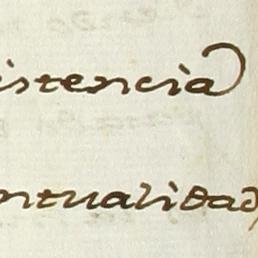 istencia
ntualidad